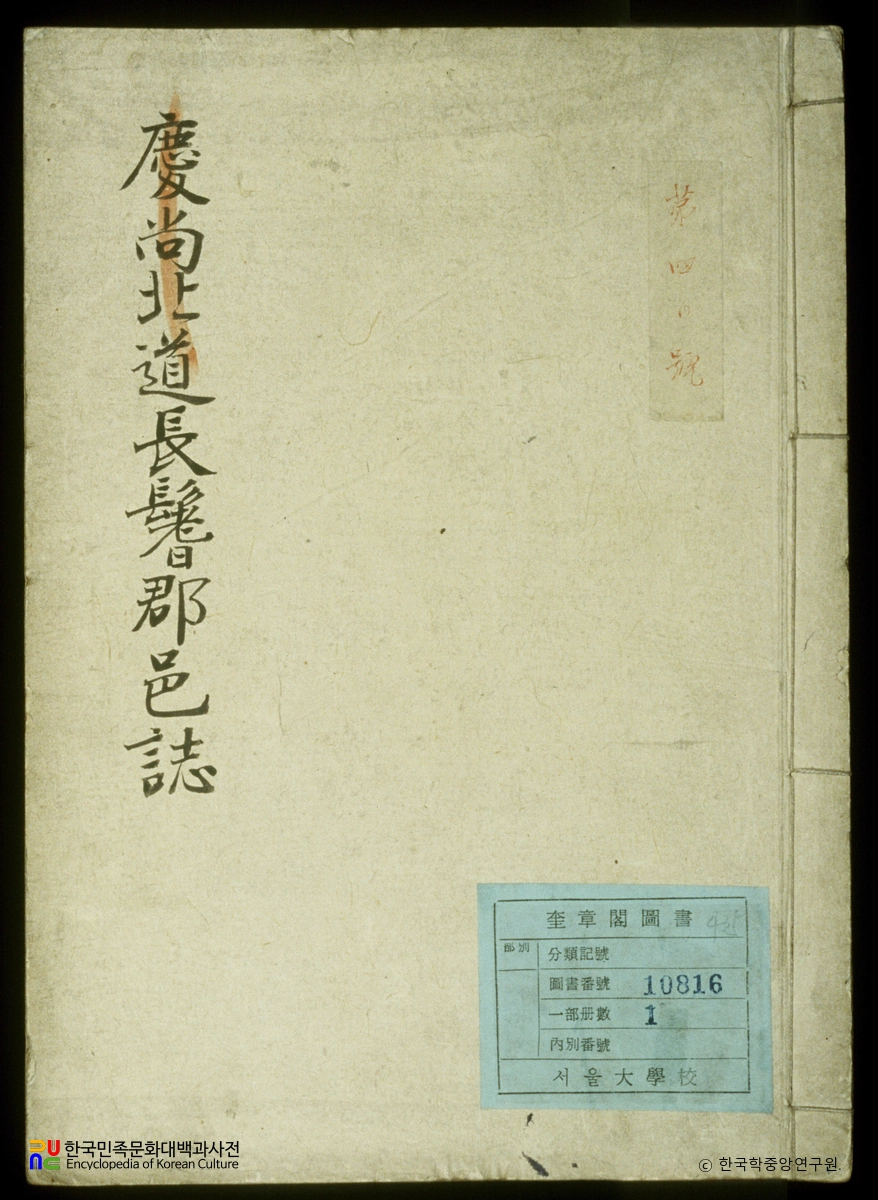 慶尙北道長鬐郡邑誌
第四口號
奎章閣圖書
部別
分類記號
圖書番號 10816
一部册數 1
內別番號
서울大學校
한국민족문화대백과사전
Encyclopedia of Korean Culture
© 한국학중앙연구원.